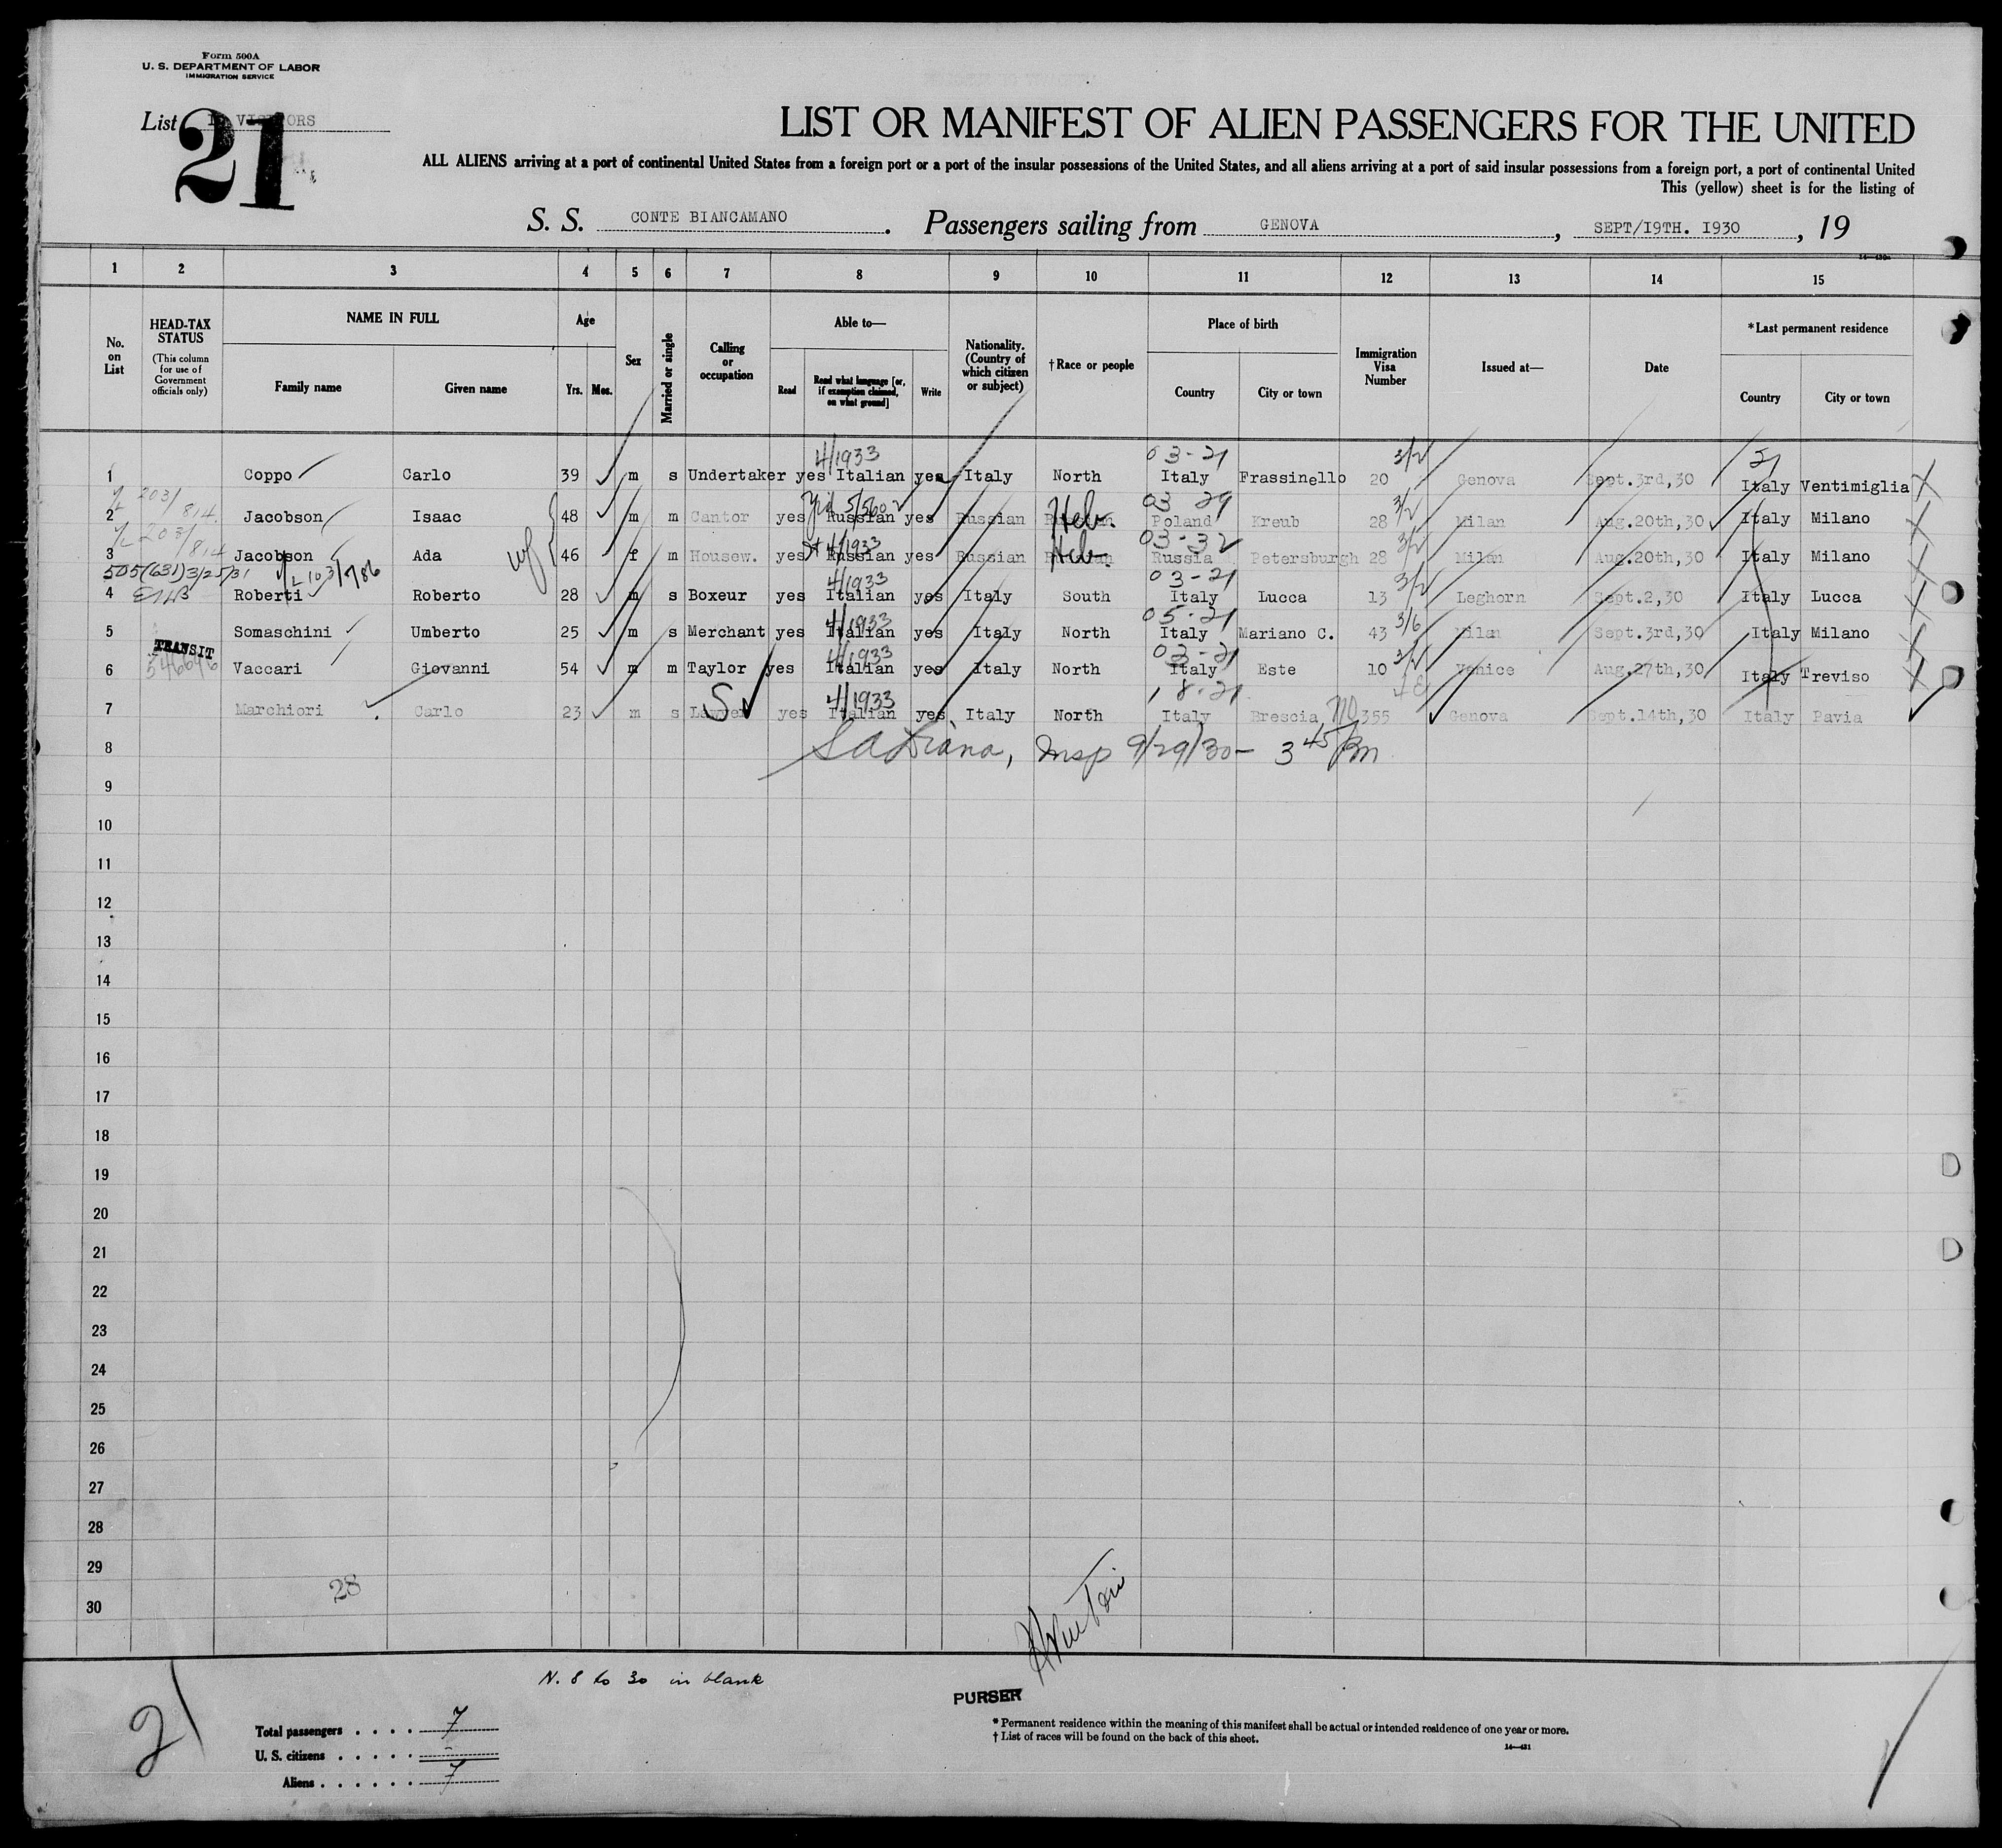 Form 500A
U. S. DEPARTMENT OF LABOR
IMMIGRATION SERVICE
List VISITORS
21
LIST OR MANIFEST OF ALIEN PASSENGERS FOR THE UNITED
ALL ALIENS arriving at a port of continental United States from a foreign port or a port of the insular possessions of the United States, and all aliens arriving at a port of said insular possessions from a foreign port, a port of continental United
This (yellow) sheet is for the listing of
S. S. CONTE BIANCAMANO. Passengers sailing from GENOVA, SEPT/19TH. 1930, 19
1 2 3 4 5 6 7 8 9 10 11 12 13 14 15
No. on List
HEAD-TAX STATUS
(This column for use of Government officials only)
NAME IN FULL
Family name Given name
Age
Yrs. Mos.
Sex
Married or single
Calling or occupation
Able to—
Read
Read what language [or, if exemption claimed, on what ground]
Write
Nationality. (Country of which citizen or subject)
† Race or people
Place of birth
Country City or town
Immigration Visa Number
Issued at—
Date
* Last permanent residence
Country City or town
4/1933 03-21 3/2 21
1 Coppo Carlo 39 m s Undertaker yes Italian yes Italy North Italy Frassinello 20 Genova Sept.3rd,30 Italy Ventimiglia
203/814 Yid 5/560 03 29 3/2
2 Jacobson Isaac 48 m m Cantor yes Russian yes Russian Heb. Poland Kreub 28 Milan Aug.20th,30 Italy Milano
203/814 wf 4/1933 03-32 3/2
3 Jacobson Ada 46 f m Housew. yes Russian yes Russian Heb. Russia Petersburgh 28 Milan Aug.20th,30 Italy Milano
505(631)3/25/31 103/786 4/1933 03-21 3/2
4 Roberti Roberto 28 m s Boxeur yes Italian yes Italy South Italy Lucca 13 Leghorn Sept.2,30 Italy Lucca
4/1933 05-21 3/6
5 Somaschini Umberto 25 m s Merchant yes Italian yes Italy North Italy Mariano C. 43 Milan Sept.3rd,30 Italy Milano
TRANSIT 4/1933 03-21 3/2
6 Vaccari Giovanni 54 m m Taylor yes Italian yes Italy North Italy Este 10 Venice Aug.27th,30 Italy Treviso
4/1933 8-21
7 Marchiori Carlo 23 m s Lawyer yes Italian yes Italy North Italy Brescia 355 Genova Sept.14th,30 Italy Pavia
8 Insp 9/29/30 - 3 45 Pm
9
10
11
12
13
14
15
16
17
18
19
20
21
22
23
24
25
26
27
28
29
28
30
N. 8 to 30 in blank
PURSER
21
Total passengers . . . . 7
U. S. citizens . . . . . -
Aliens . . . . . . 7
* Permanent residence within the meaning of this manifest shall be actual or intended residence of one year or more.
† List of races will be found on the back of this sheet.
14—431